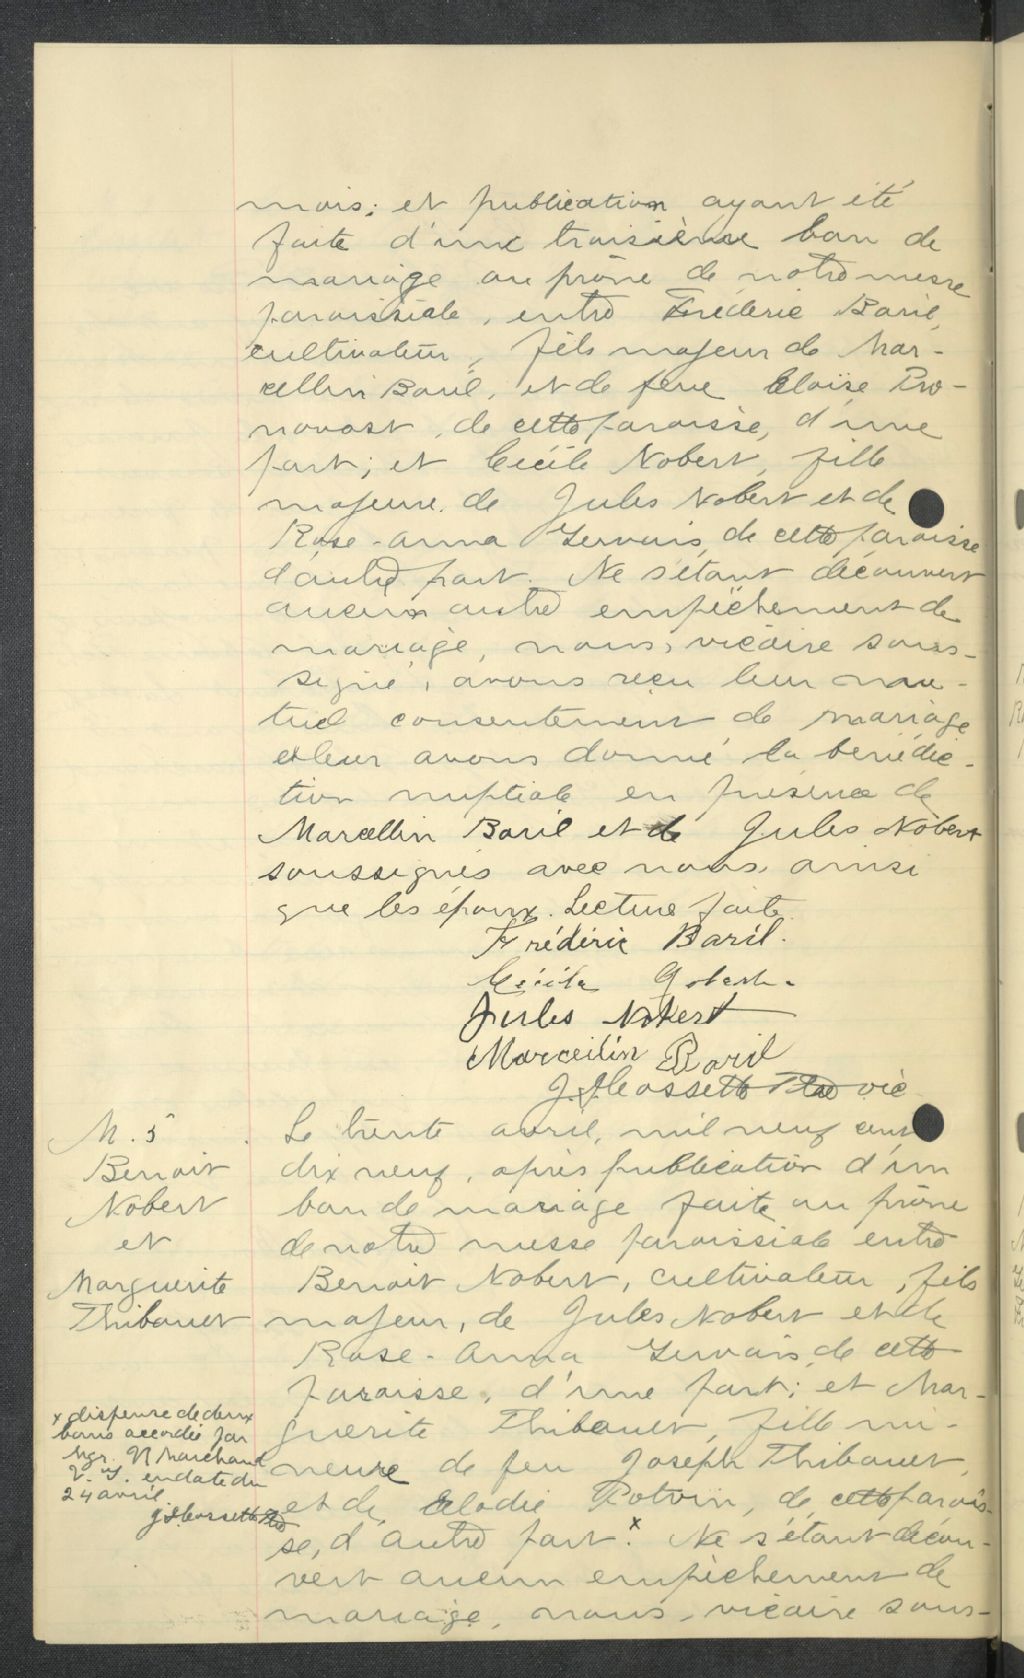 mois; et publication ayant été
faite d'une troisième ban de
mariage au prône de notre messe
paroissiale, entre Frédéric Baril,
cultivateur, fils majeur de Mar-
cellin Baril, et de feue Eloïse Pro-
novost, de cette paroisse, d'une
part; et Cécile Nobert, fille
majeure de Jules Nobert et de
Rose-Anna Gervais, de cette paroisse
d'autre part. Ne s'étant découvert
aucun autre empêchement de
mariage, nous, vicaire sous-
signé, avons reçu leur mu-
tuel consentement de mariage
et leur avons donné la bénédic-
tion nuptiale en présence de
Marcellin Baril et de Jules Nobert
soussignés avec nous, ainsi
que les époux. Lecture faite.
Frédéric Baril.
Cécile
Jules Nobert
Marcellin Baril
J. Cossette Ptre vic
M. 5
Benoit
Nobert
et
Marguerite
Thibault
Le trente avril, mil neuf cent
dix neuf, après publication d'un
ban de mariage faite au prône
de notre messe paroissiale entre
Benoit Nobert, cultivateur, fils
majeur, de Jules Nobert et de
Rose-Anna Gervais, de cette
paroisse, d'une part; et Mar-
guerite Thibault, fille mi-
neure de feu Joseph Thibault,
et de Elodie Potvin, de cette parois-
se, d'autre part. x Ne s'étant décou-
vert aucun empêchement de
mariage, nous, vicaire sous-
x dispense de deux
bans accordée par
Mgr. Marchand
V. G. en date du
24 avril
Cossette Ptre